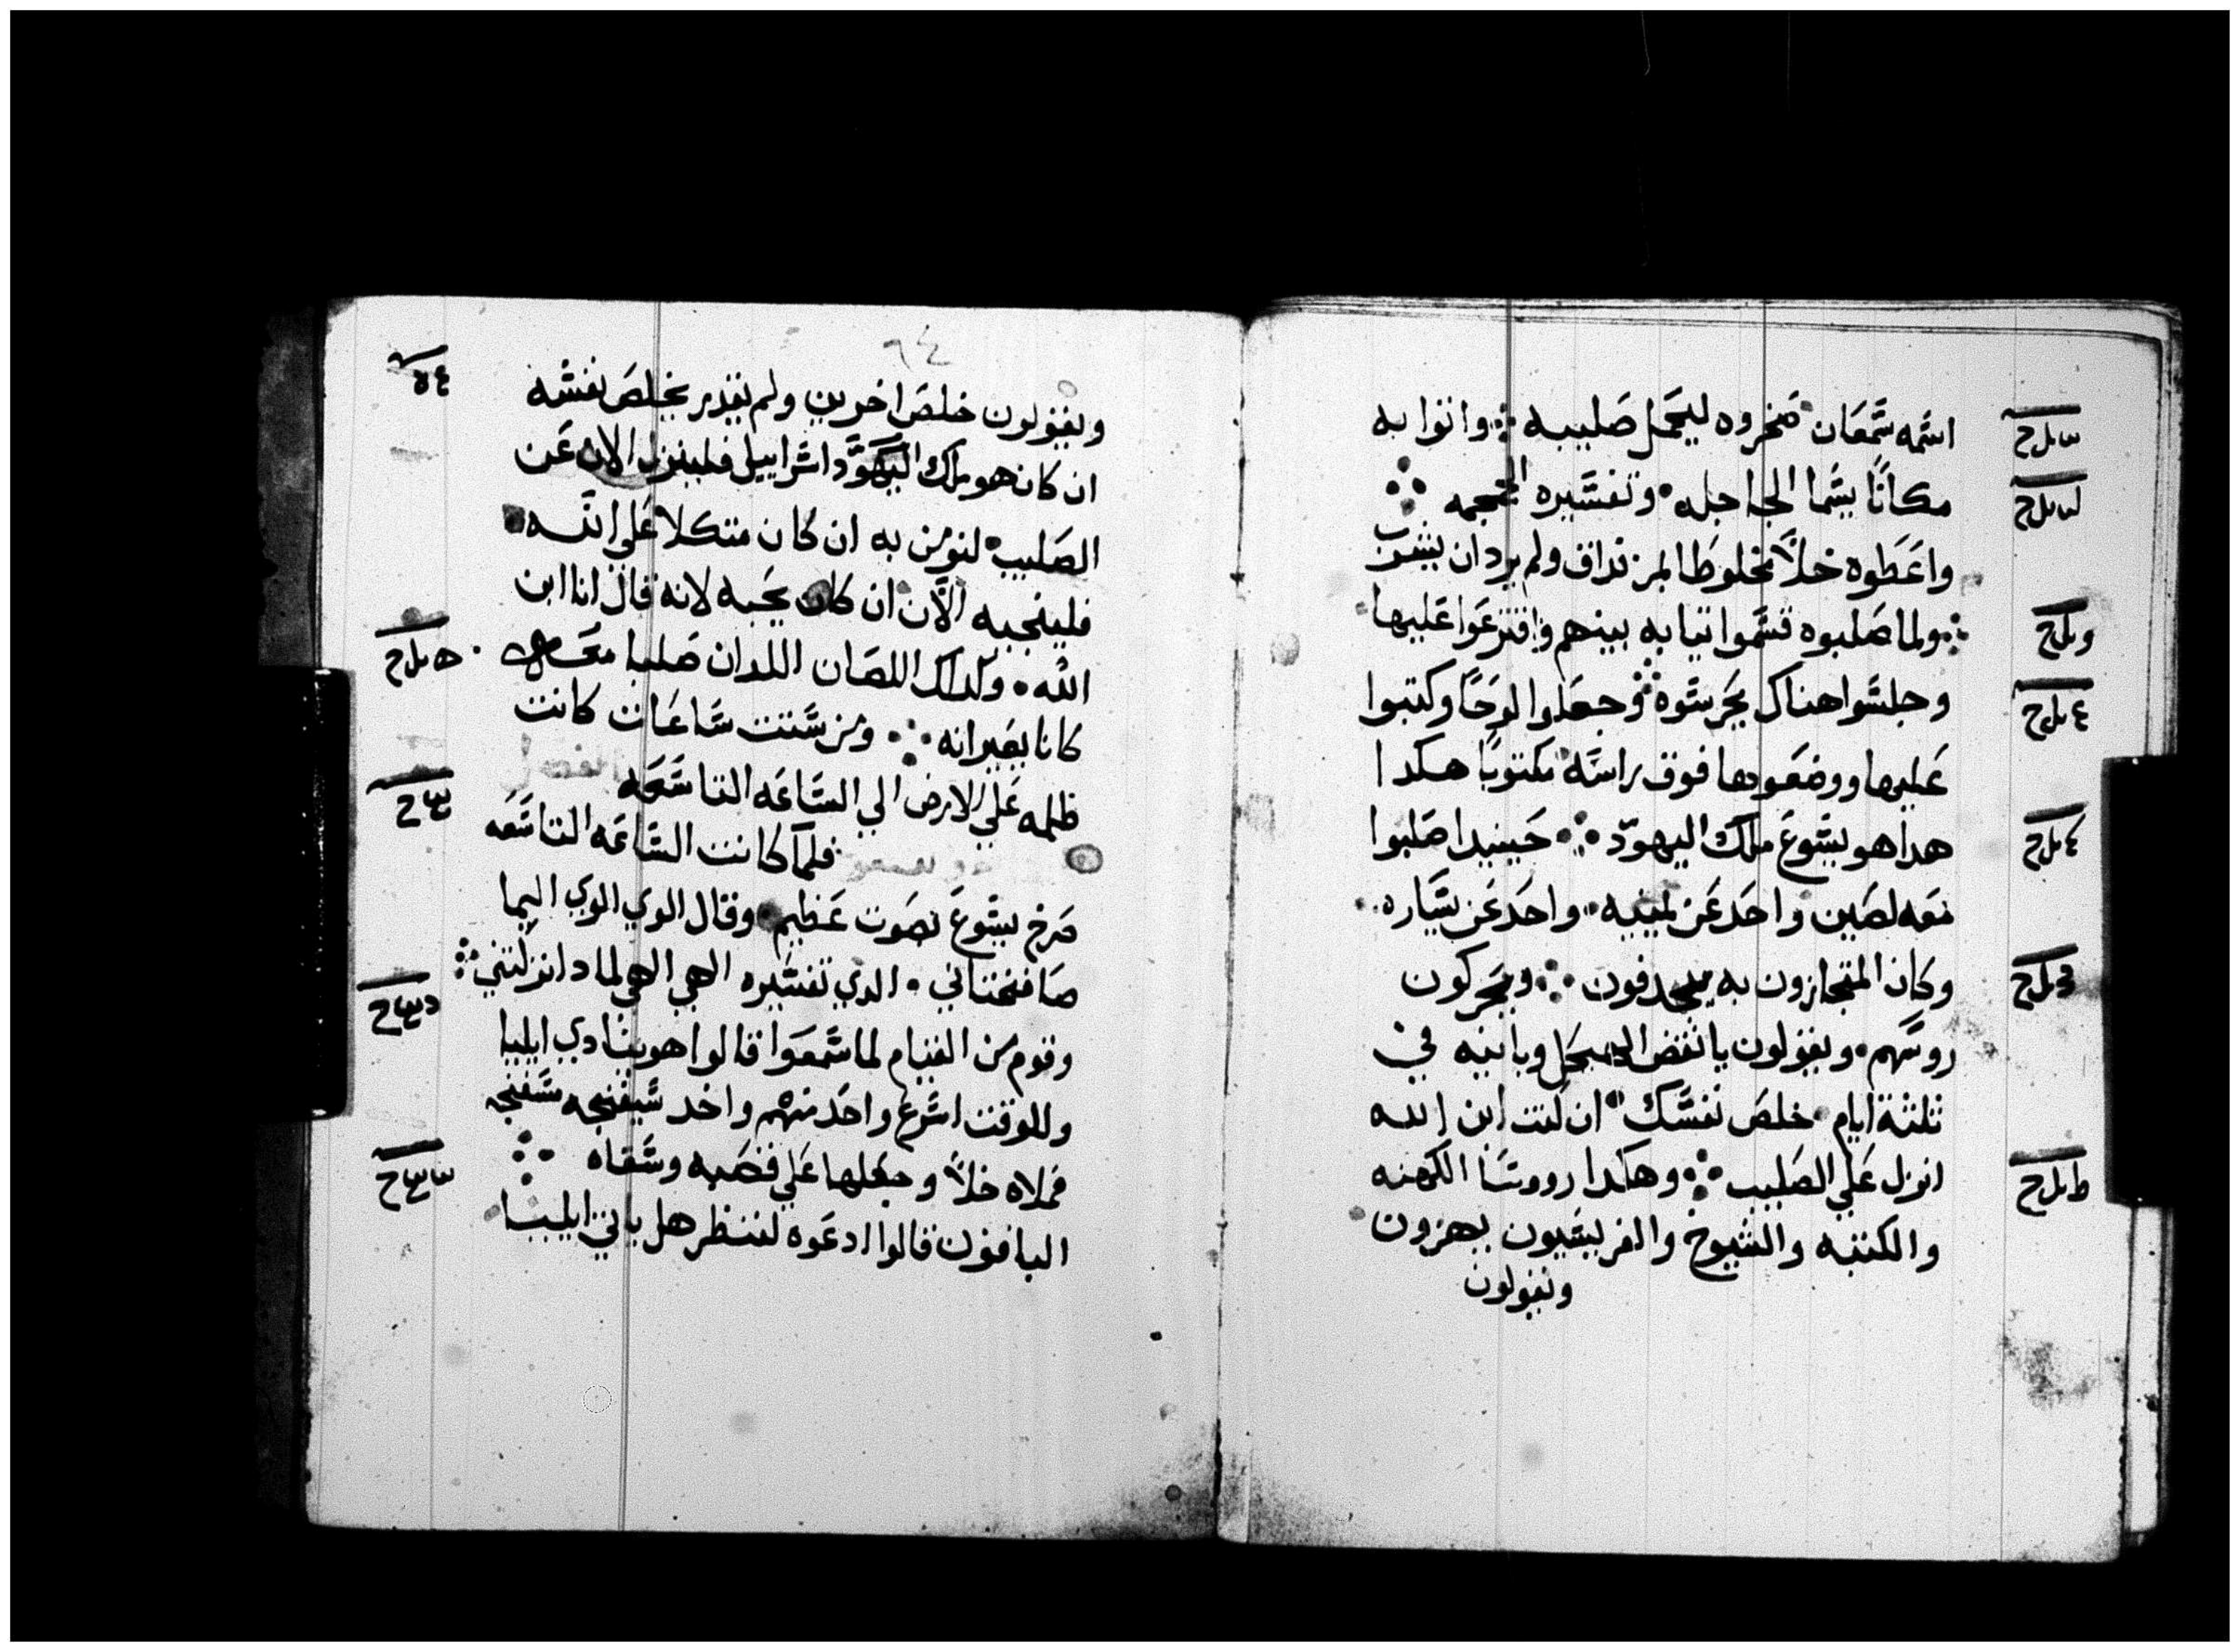 اسمه سمعان فسخروه ليحمل صليبه واتوا به
مكانًا يسما الجاجله وتفسيره الجمجمه
واعطوه خلاً مخلوطا بمر فداق ولم يرد ان يشرب
ولما صلبوه قسموا ثيابه بينهم واقترعوا عليها
وجلسوا هناك يحرسوه وجعلوا لوحًا وكتبوا
عليها ووضعوها فوق راسه مكتوبًا هكدا
هدا هو يسوع ملك اليهود حينيدا صلبوا
معه لصين واحد عن يمينه واحد عن يساره
وكان المتجازون به يجدفون ويحركون
روسهم ويقولون يا ناقض الهيكل وبانيه في
ثلثة ايام خلص نفسك ان كنت ابن الله
انزل علي الصليب وهاكدا رووسا الكهنه
والكتبه والشيوخ والفريسيون يهزون
ويقولون
٦٤
ويقولون خلص اخرين ولم يقدر يخلص نفسه
ان كان هو ملك اسراييل فلينزل الان عن
الصليب لنومن به ان كان متكلا علي الله
فلينجيه الآن ان كان يحبه لانه قال انا ابن
الله وكدلك اللصان اللدان صلبا معه
كانا يعيرانه ومن ستت ساعات كانت
ظلمه علي الارض الي الساعه التاسعه
فلما كانت الساعه التاسعه
صرخ يسوع بصوت عظيم وقال الوي الوي اليما
صافختاني الدي تفسيره الهي الهي لمادا تركتني
وقوم من القيام لما سمعوا قالوا هو ينادي ايليا
وللوقت اسرع واحد منهم واخد سيفنجه سفنجه
فملاه خلاً وجعلها علي قصبه وسقاه
الباقون قالوا ادعوه لننظر هل ياتي ايليا